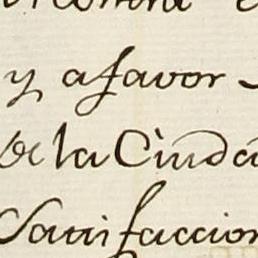 y a favor
de la Ciuda
Satisfaccion